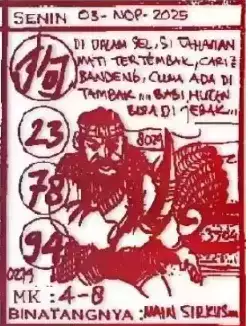 SENIN 03-NOP-2025
DI DALAM SEL, SI TAHANAN
MATI TERTEMBAK, CARI2
BANDENG, CUMA ADA DI
TAMBAK... BABI HUTAN
BISA DI JEBAK...
23
8029
78
94
0279
MK : 4-8
BINATANGNYA : MAIN SIRKUS...